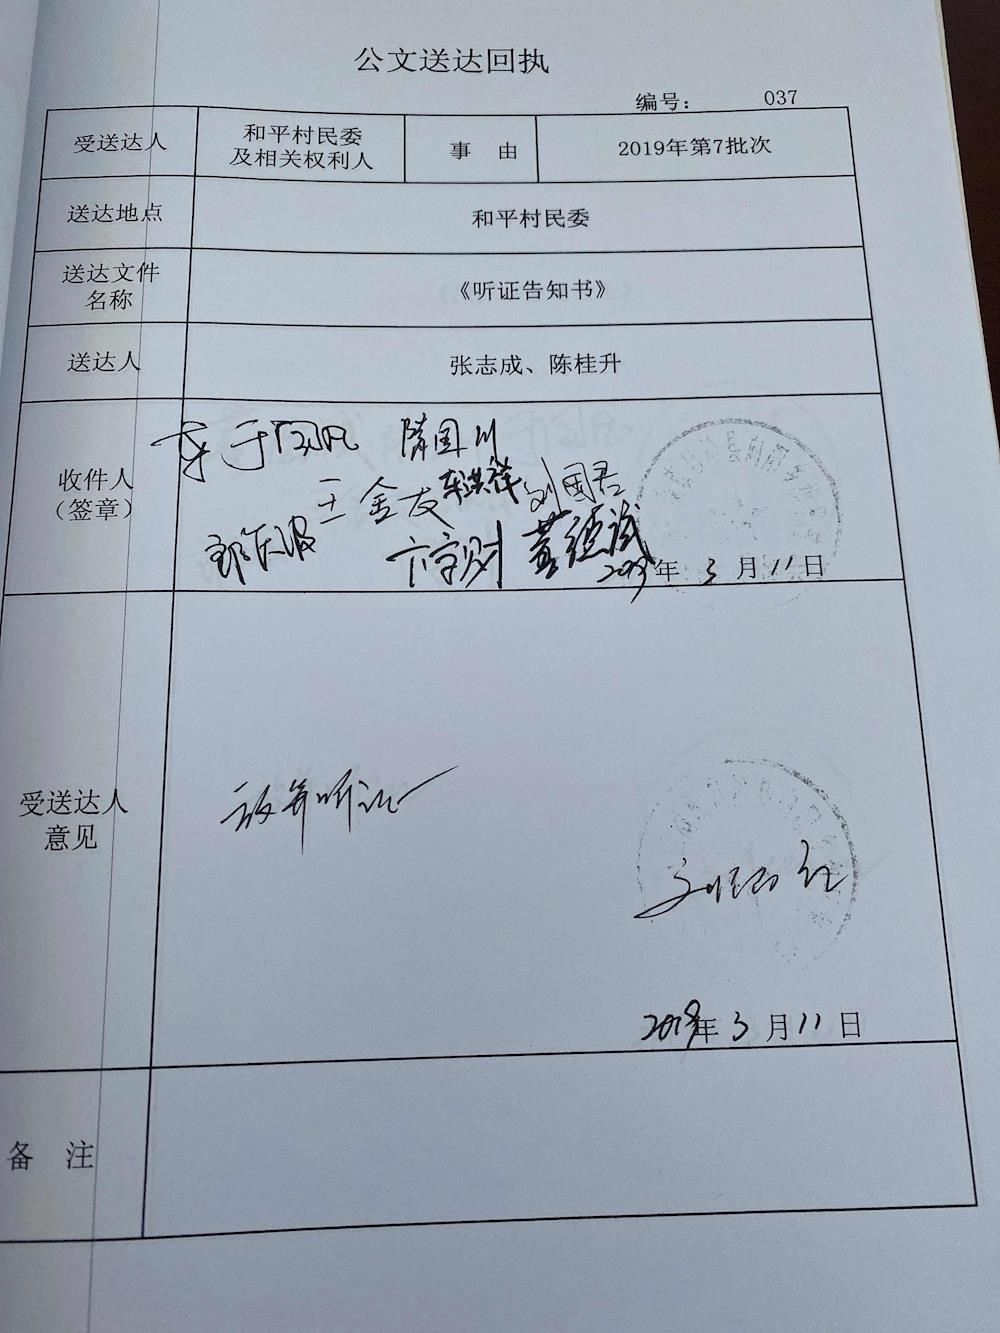 公文送达回执
编号： 037
受送达人
和平村民委
及相关权利人
事 由
2019年第7批次
送达地点
和平村民委
送达文件
名称
《听证告知书》
送达人
张志成、陈桂升
收件人
（签章）
隋国川
王金友 车洪祥 刘国君
董德诚
2019年 3 月 11 日
受送达人
意见
放弃听证
2019年 3 月 11 日
备 注